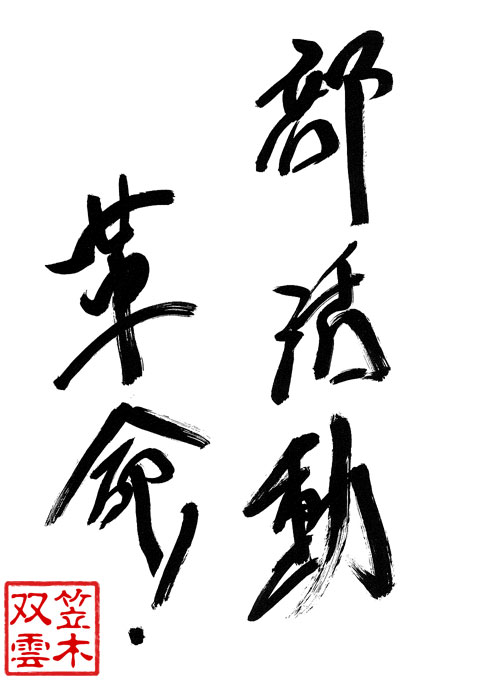 部活動
革命!
笠木
双雲